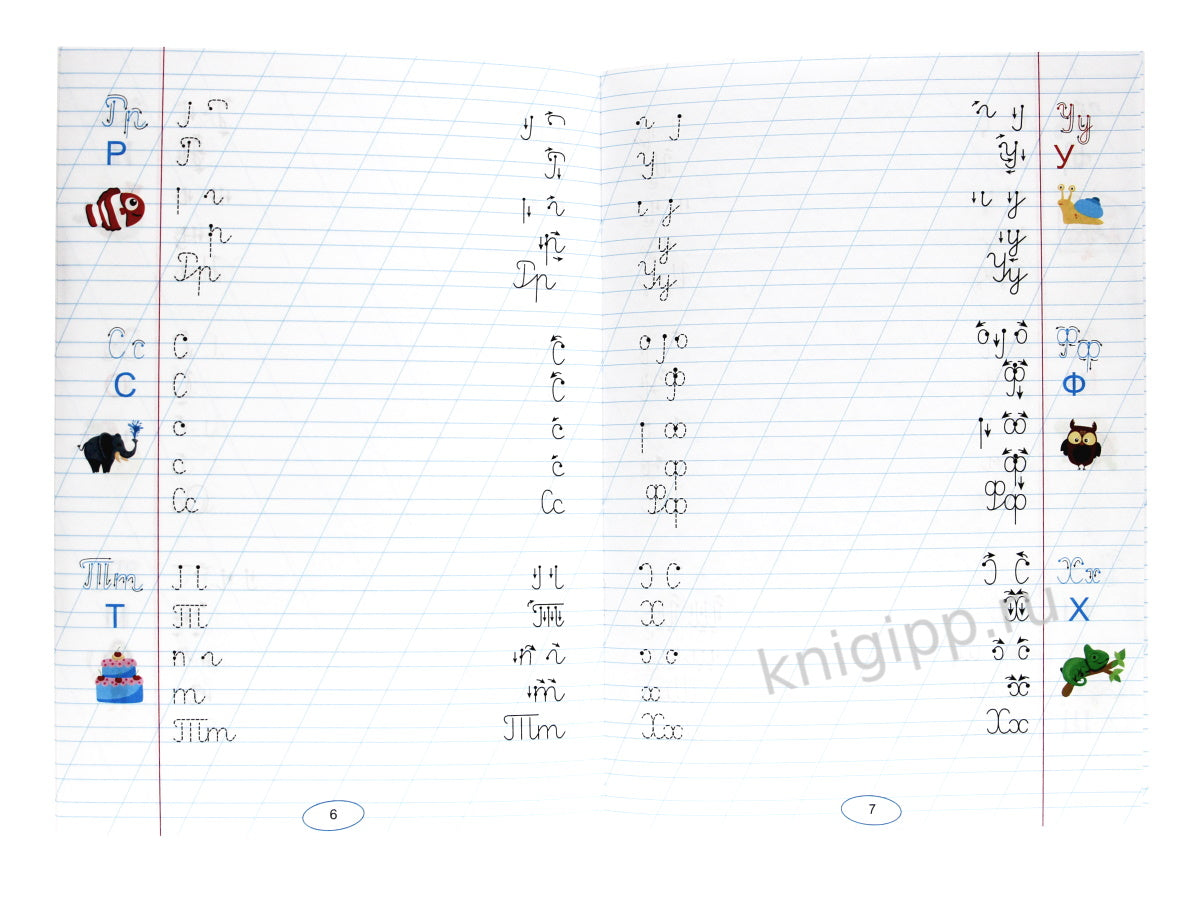 Рр
Р
Р
р
Рр Рр
Сс
С
С С
С С
с с
с с
Сс Сс
Тт
Т
Т Т
т т
Тт Тт
6
Уу
У
У У
у у
Уу Уу
Фф
Ф
Ф Ф
ф ф
Фф Фф
Хх
Х
Х Х
х х
Хх Хх
7
knigipp.ru